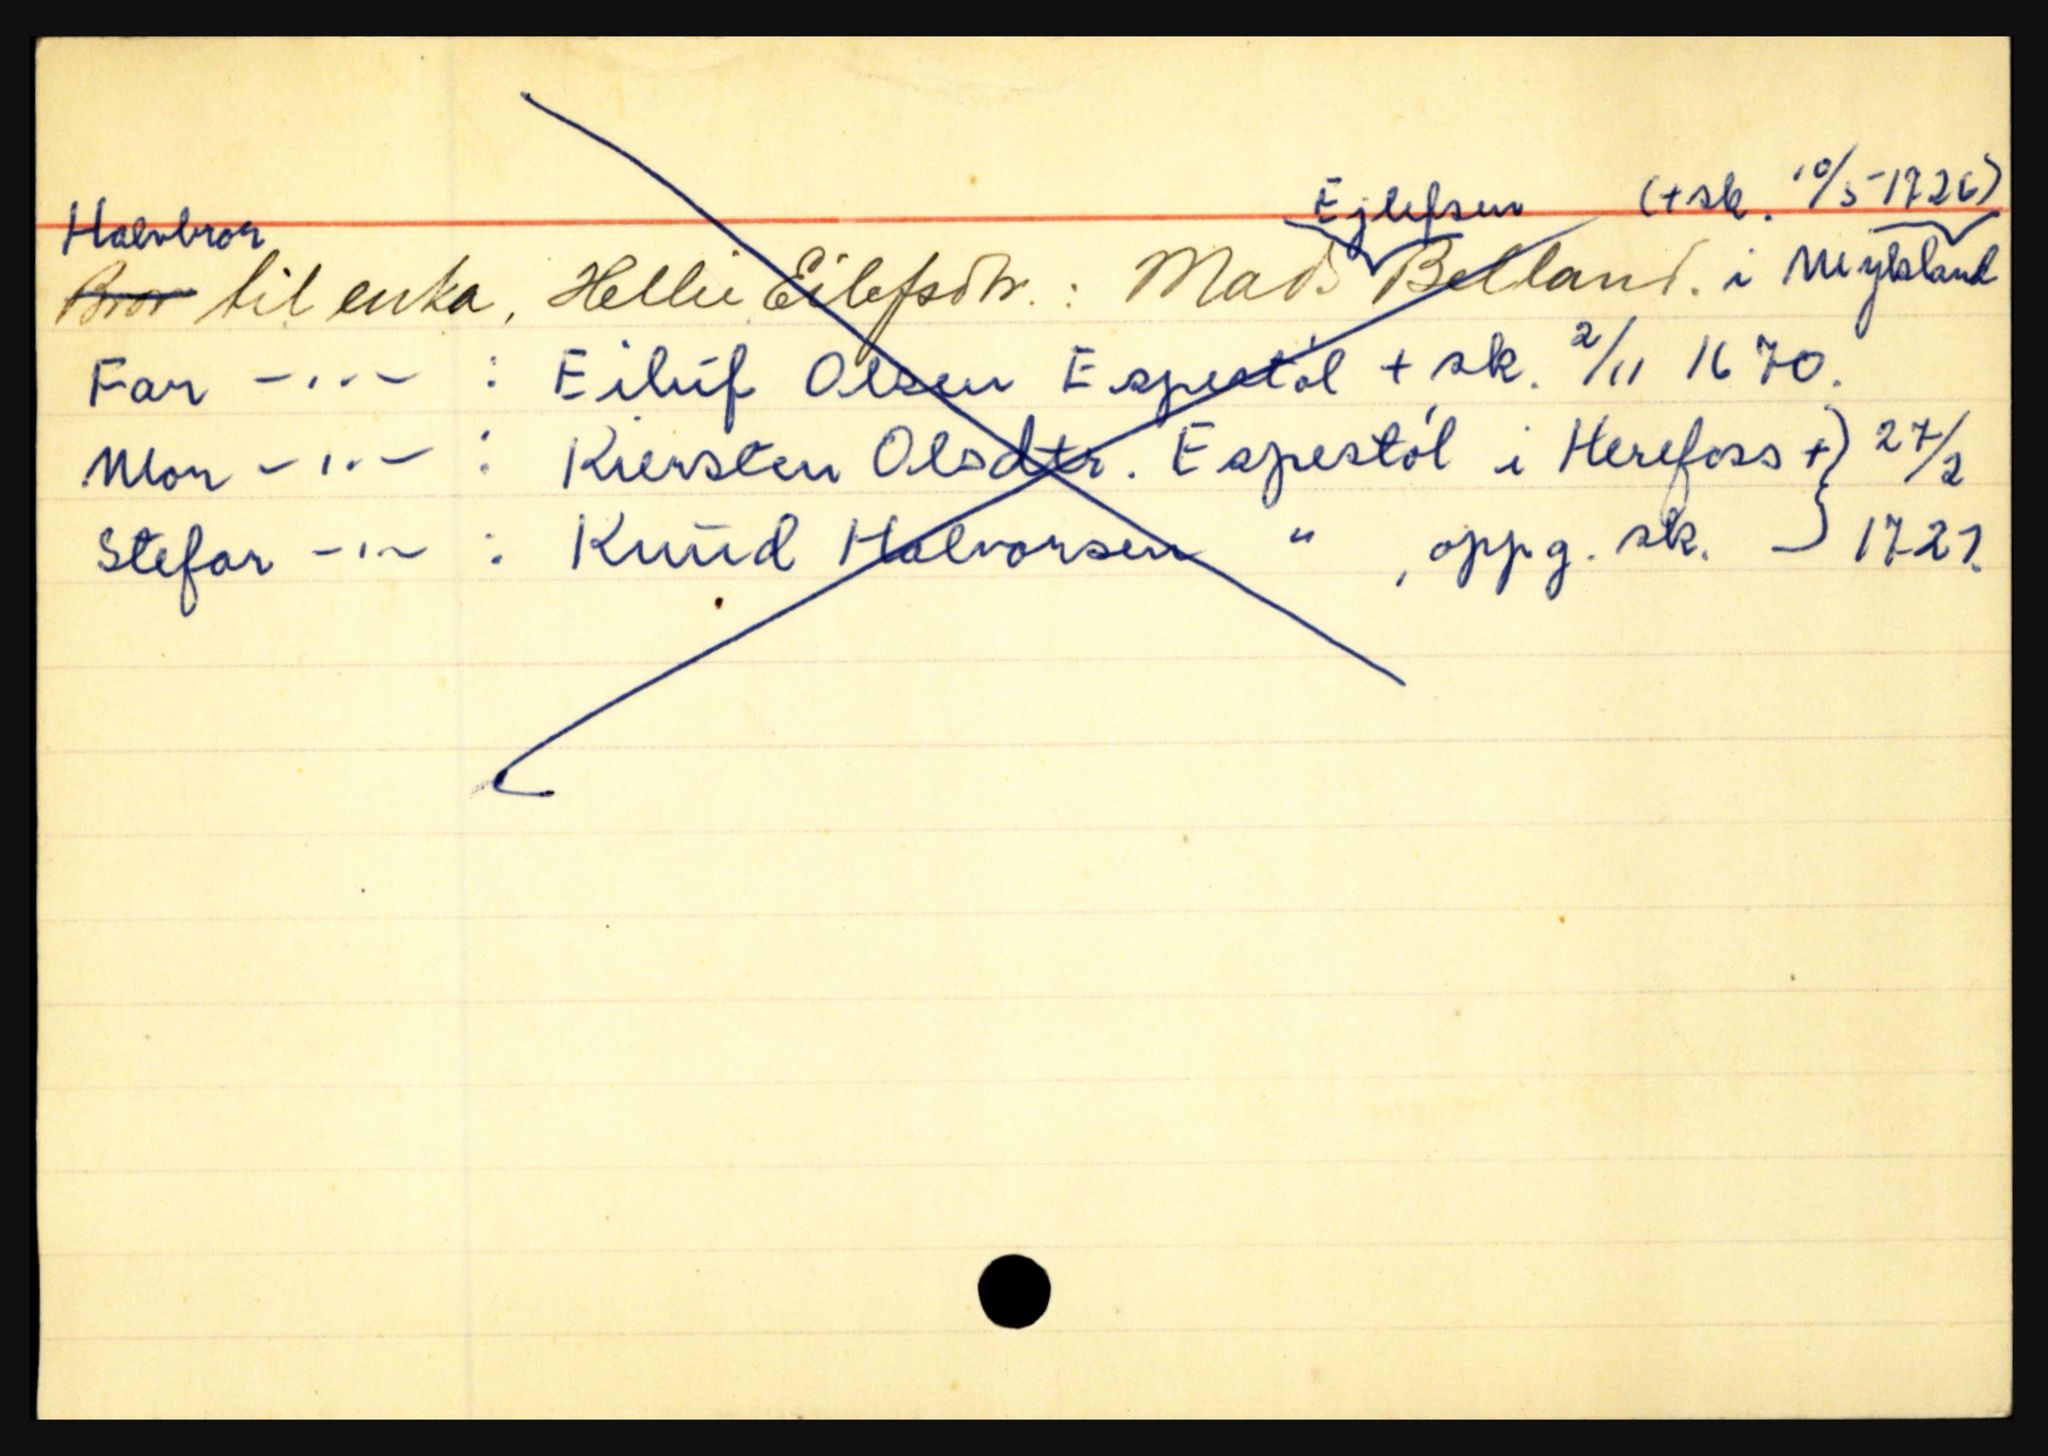 Ejlefsen (+ sk. 10/5-1726)
Halvbror
Bror til enka, Hellie Eilefsdtr.: Mads Belland. i Mykland
Far -"- : Eiluf Olsen Espestøl + sk. 2/11 1670.
Mor -"- : Kiersten Olsdtr. Espestøl i Herefoss +} 27/2
Stefar -"- : Knud Halvorsen " , oppg. sk. } 1721.